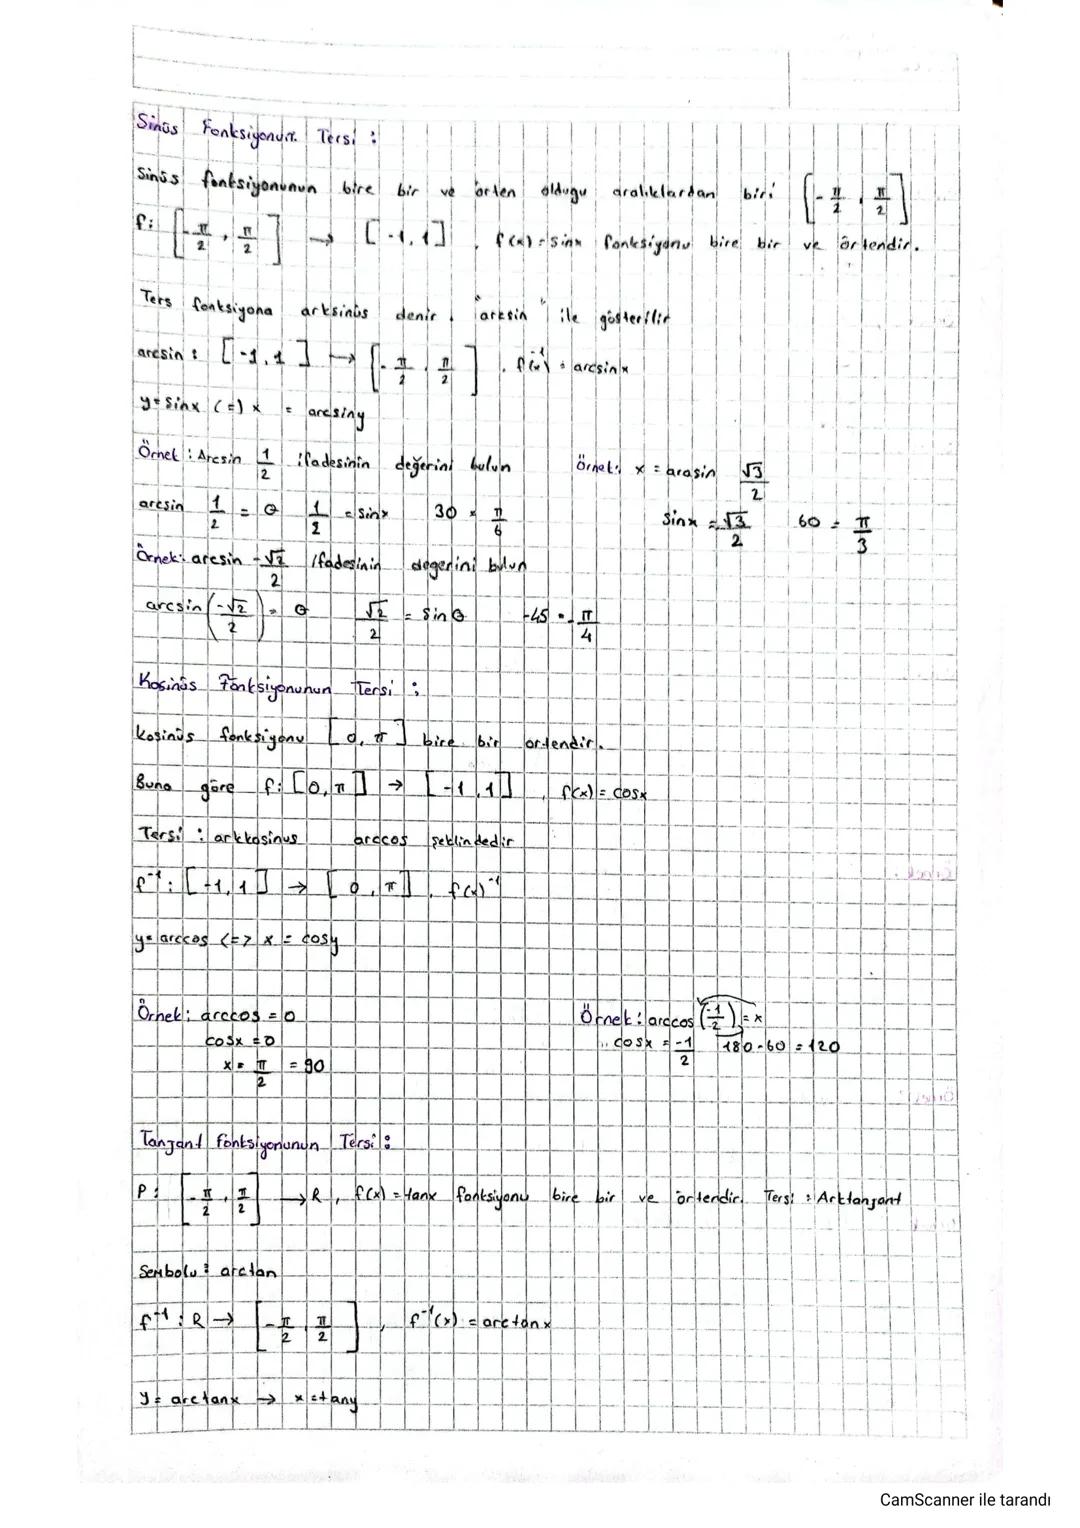 Sinüs Fonksiyonun Tersi :
Sinüs fonksiyonunun bire bir ve örten oldugu aralıklardan biri [-π/2, π/2]
f: [-π/2, π/2] → [-1,1], f(x)=sinx fonksiyonu bire bir ve örtendir.
Ters fonksiyona arksinüs denir. "arksin" ile gösterilir
arcsin: [-1,1] → [-π/2, π/2], f(x)^-1 = arcsinx
y=sinx (=) x = arcsiny
Örnek: Arcsin 1/2 ifadesinin değerini bulun
arcsin 1/2 = θ 1/2 = sinx 30 = π/6
Örnek: x = arasin √3/2
Sinx = √3/2 60 = π/3
Örnek: arcsin -√2/2 ifadesinin degerini bulun
arcsin(-√2/2) = θ √2/2 = sinθ -45 = -π/4
Kosinüs Fonksiyonunun Tersi :
Kosinüs fonksiyonu [0, π] bire bir ortendir.
Buna göre f: [0, π] → [-1,1], f(x) = cosx
Tersi : arkkosinus arccos şeklindedir
f^-1: [-1,1] → [0, π], f(x)^-1
y= arccos <=> x = cosy
Örnek: arccos = 0
cosx = 0
x = π/2 = 90
Örnek: arccos (-1/2) = x
cosx = -1/2 180-60 = 120
Tanjant fonksiyonunun Tersi :
P: [-π/2, π/2] → R, f(x) = tanx fonksiyonu bire bir ve örtendir. Tersi : Arktanjant
Sembolu : arctan
f^-1 : R → [-π/2, π/2], f^-1(x) = arctanx
y = arctanx → x = tany
CamScanner ile tarandı